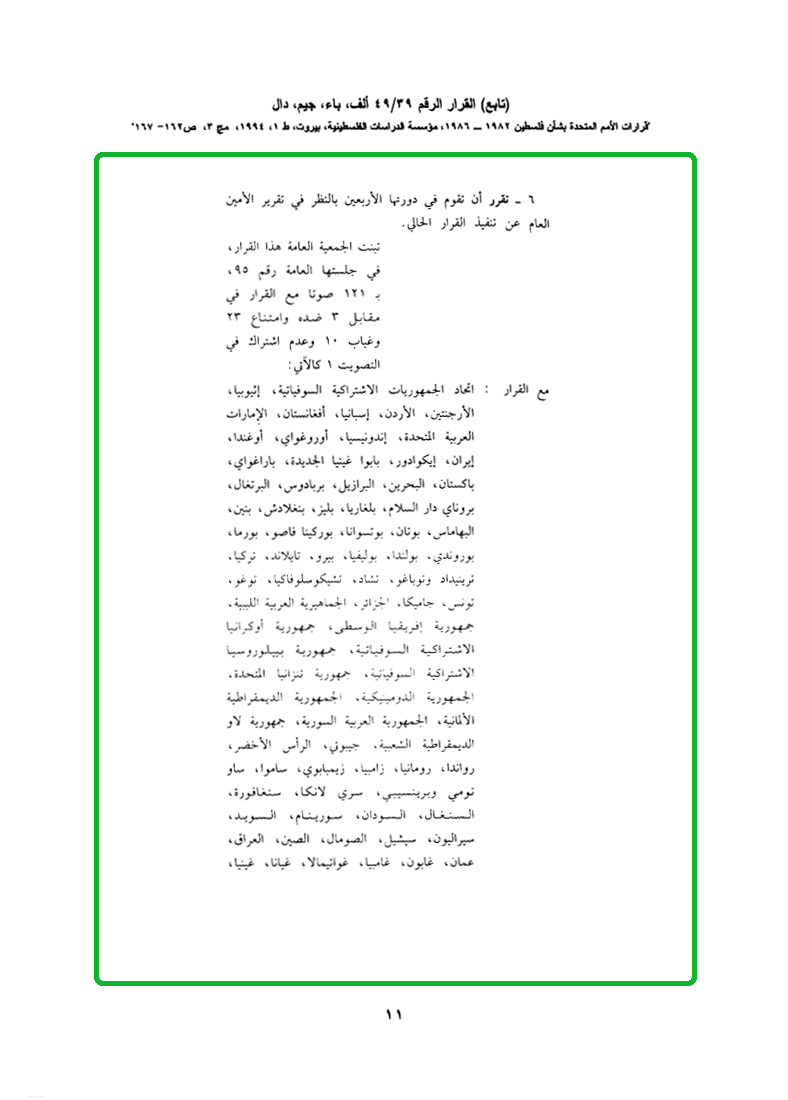 (تابع) القرار الرقم ٤٩/٣٩ ألف، باء، جيم، دال
"قرارات الأمم المتحدة بشأن فلسطين ١٩٨٢ ــ ١٩٨٦، مؤسسة الدراسات الفلسطينية، بيروت، ط ١، ١٩٩٤، مج ٣، ص١٦٢- ١٦٧"
٦ ـ تقرر أن تقوم في دورتها الأربعين بالنظر في تقرير الأمين
العام عن تنفيذ القرار الحالي.
تبنت الجمعية العامة هذا القرار،
في جلستها العامة رقم ٩٥،
بـ ١٢١ صوتا مع القرار في
مقابل ٣ ضده وامتناع ٢٣
وغياب ١٠ وعدم اشتراك في
التصويت ١ كالآتي:
مع القرار : اتحاد الجمهوريات الاشتراكية السوفياتية، إثيوبيا،
الأرجنتين، الأردن، إسبانيا، أفغانستان، الإمارات
العربية المتحدة، إندونيسيا، أوروغواي، أوغندا،
إيران، إيكوادور، بابوا غينيا الجديدة، باراغواي،
باكستان، البحرين، البرازيل، بربادوس، البرتغال،
بروناي دار السلام، بلغاريا، بليز، بنغلادش، بنين،
البهاماس، بوتان، بوتسوانا، بوركينا فاصو، بورما،
بوروندي، بولندا، بوليفيا، بيرو، تايلاند، تركيا،
ترينيداد وتوباغو، تشاد، تشيكوسلوفاكيا، توغو،
تونس، جاميكا، الجزائر، الجماهيرية العربية الليبية،
جمهورية إفريقيا الوسطى، جمهورية أوكرانيا
الاشتراكية السوفياتية، جمهورية بييلوروسيا
الاشتراكية السوفياتية، جمهورية تنزانيا المتحدة،
الجمهورية الدومينيكية، الجمهورية الديمقراطية
الألمانية، الجمهورية العربية السورية، جمهورية لاو
الديمقراطية الشعبية، جيبوتي، الرأس الأخضر،
رواندا، رومانيا، زامبيا، زيمبابوي، ساموا، ساو
تومي وبرينسيبي، سري لانكا، سنغافورة،
السنغال، السودان، سورينام، السويد،
سيراليون، سيشيل، الصومال، الصين، العراق،
عمان، غابون، غامبيا، غواتيمالا، غيانا، غينيا،
١١